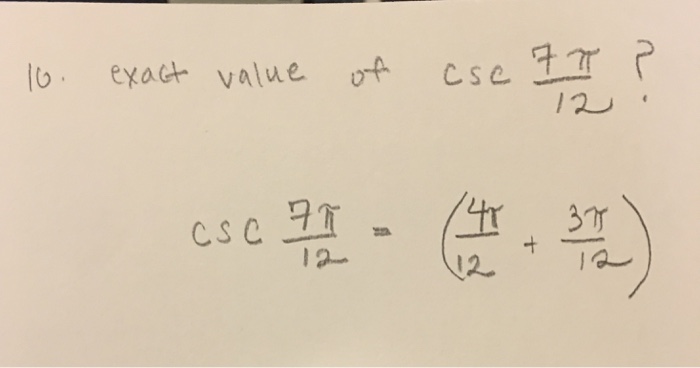 10. exact value of csc 7π/12 ?
csc 7π/12 = (4π/12 + 3π/12)